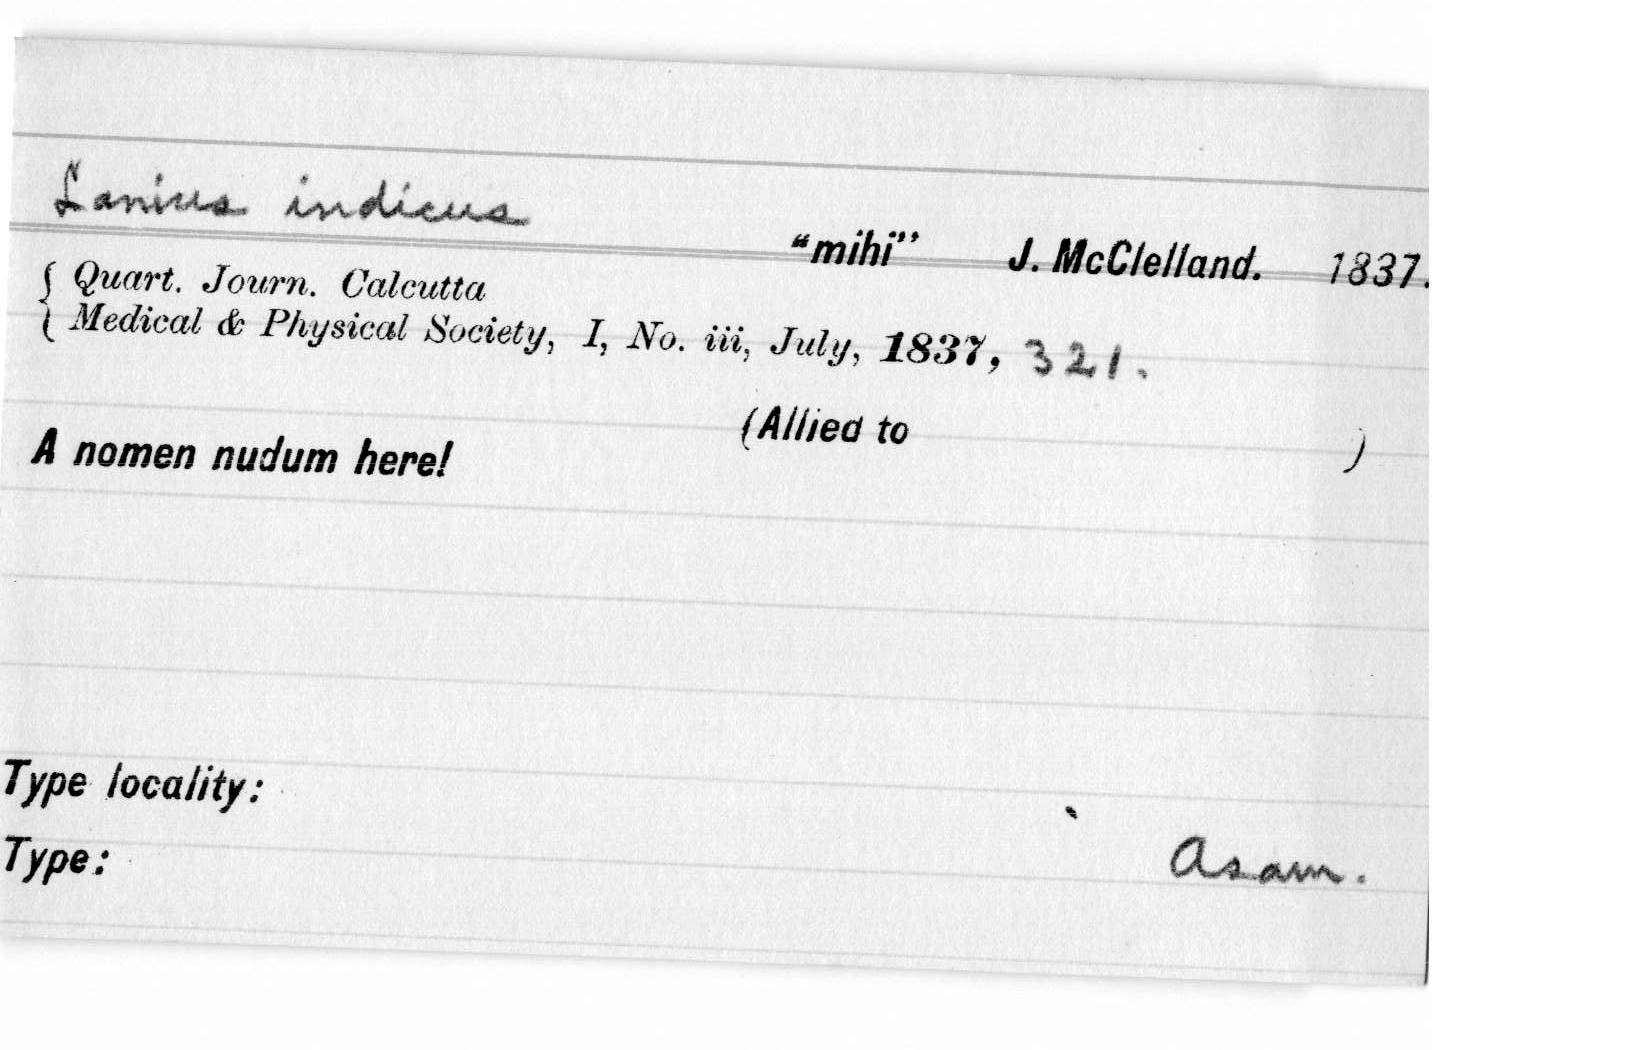 Lanius indicus
"mihi" J. McClelland. 1837.
{ Quart. Journ. Calcutta
{ Medical & Physical Society, I, No. iii, July, 1837, 321.
(Allied to )
A nomen nudum here!
Type locality:
Asam.
Type: